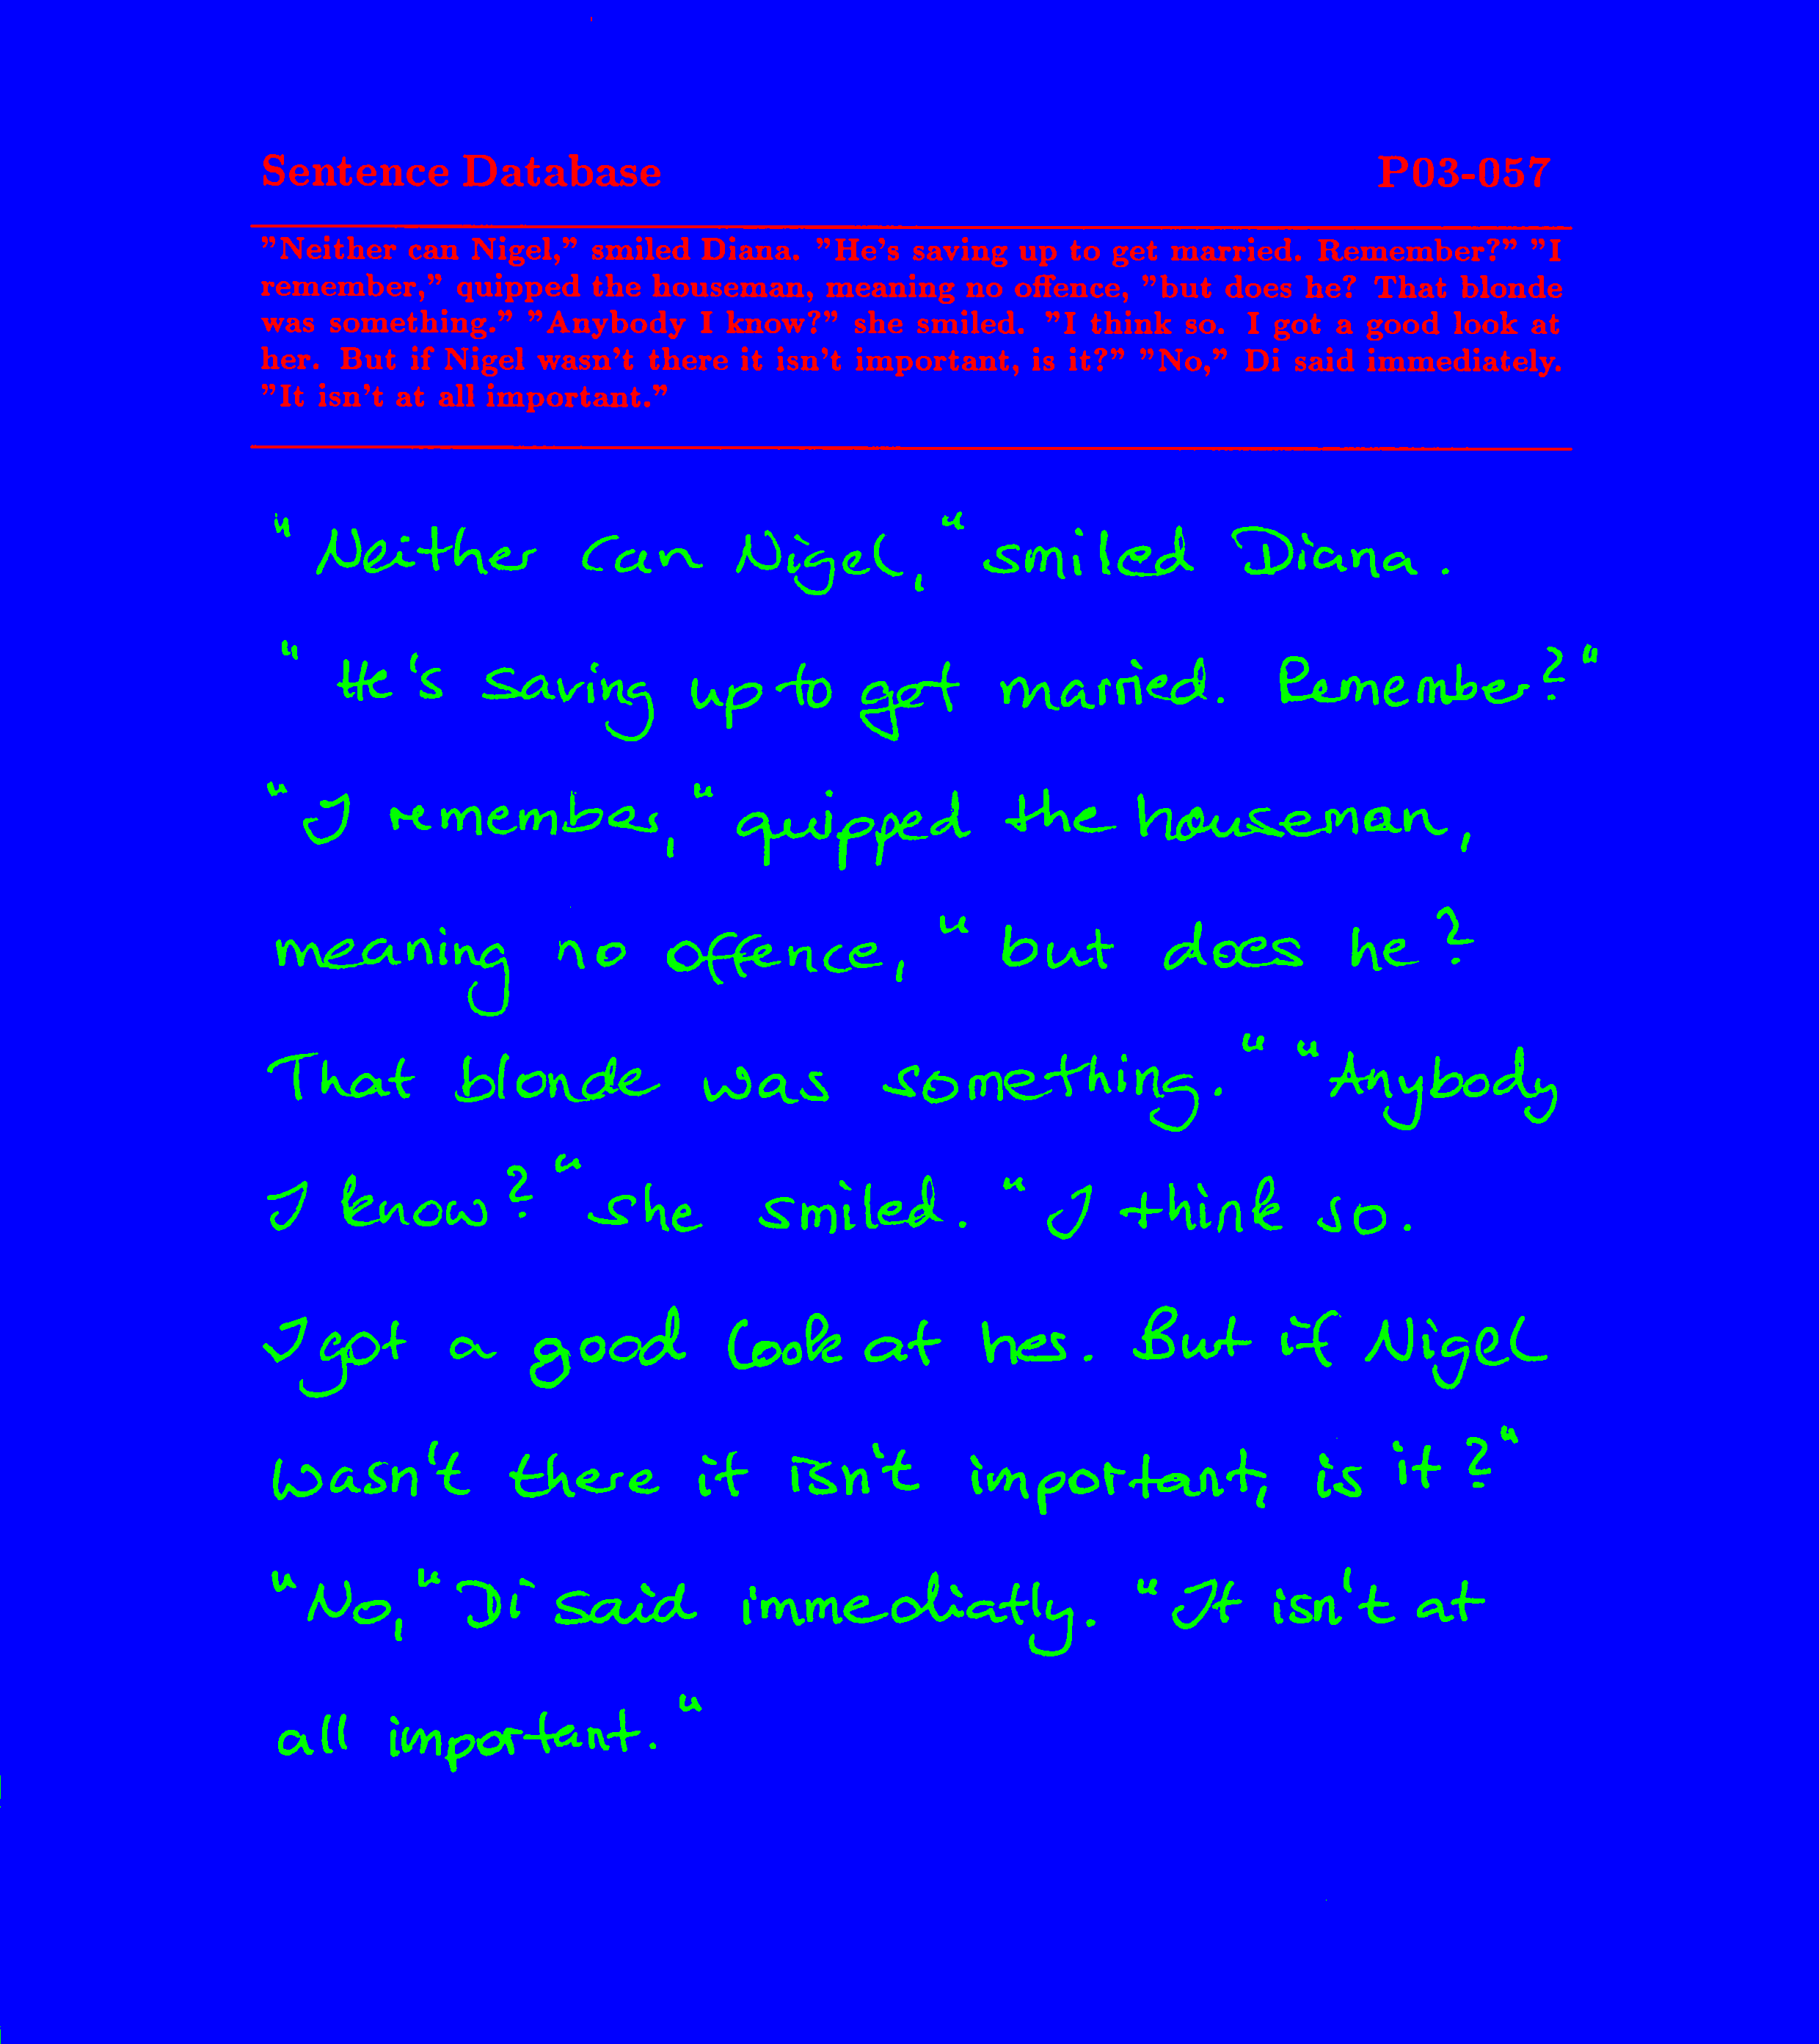 Sentence Database P03-057
"Neither can Nigel," smiled Diana. "He's saving up to get married. Remember?" "I
remember," quipped the houseman, meaning no offence, "but does he? That blonde
was something." "Anybody I know?" she smiled. "I think so. I got a good look at
her. But if Nigel wasn't there it isn't important, is it?" "No," Di said immediately.
"It isn't at all important."
"Neither can Nigel," smiled Diana.
"He's saving up to get married. Remember?"
"I remember," quipped the houseman,
meaning no offence, "but does he?
That blonde was something." "Anybody
I know?" she smiled. "I think so.
I got a good look at her. But if Nigel
wasn't there it isn't important, is it?"
"No," Di said immediatly. "It isn't at
all important."